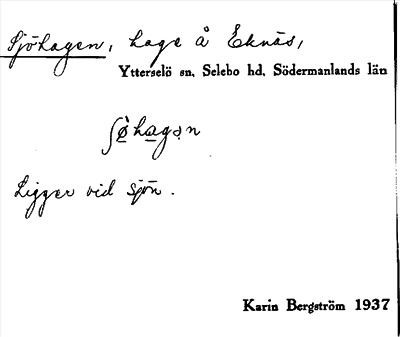 Sjöhagen, hage å Eknäs,
Ytterselö sn, Selebo hd, Södermanlands län
ʃø̀hagən
Ligger vid sjön.
Karin Bergström 1937